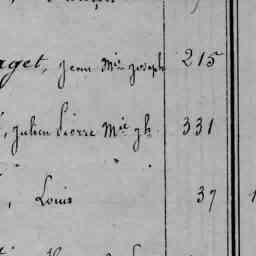 rget, Jean Mie Joseph 215
, Julien Pierre Mie Jh 331
" "
, Louis 37